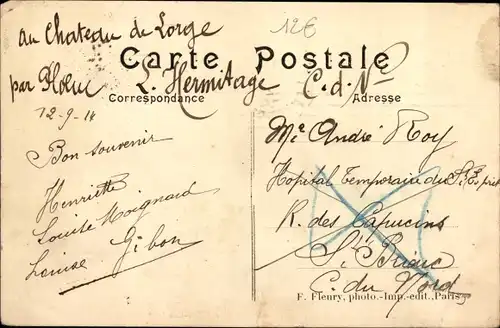 au Chateau de Lorge
12€
Carte Postale
par Ploeuc L. Hermitage C. d. N.
Correspondance
Adresse
12-9-14
Bon souvenir
Henriette
Louise Moignard
Louise Gibon
Mr André Roy
Hopital Temporaire du St Esprit
R. des Capucins
St Brieuc
C. du Nord
F. Fleury, photo.-Imp.-edit., Paris